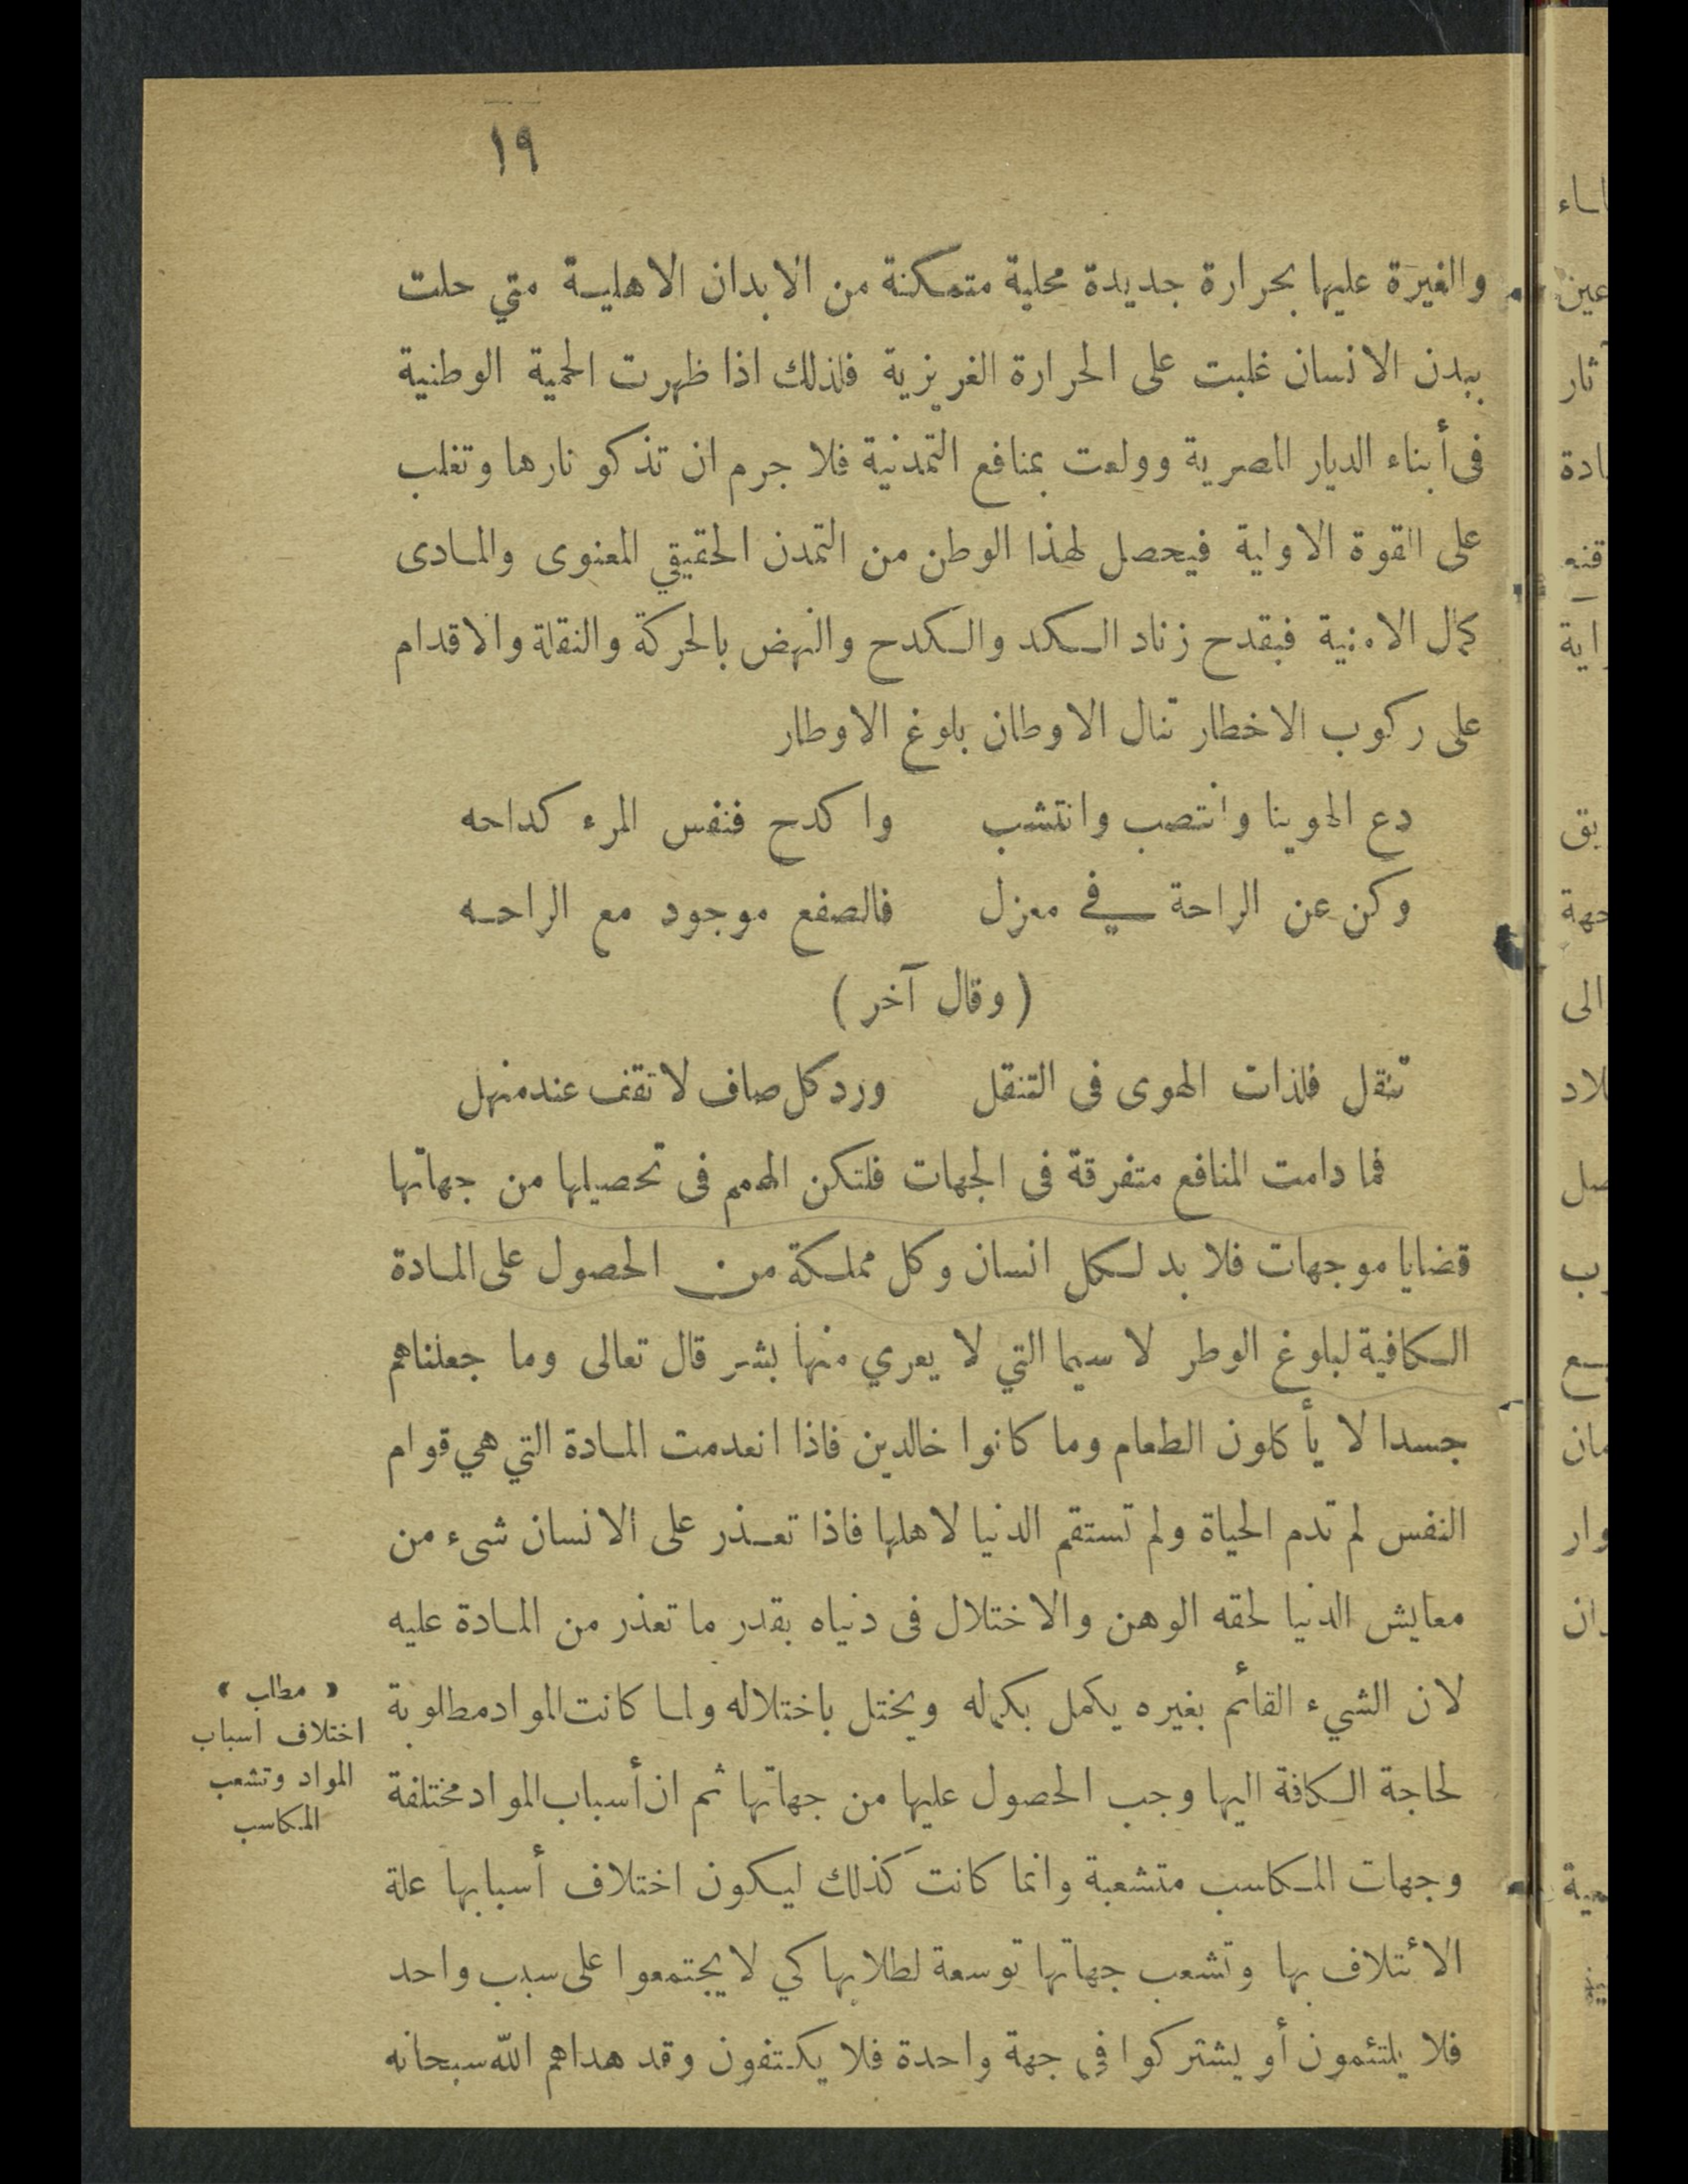 ١٩
والغيرة عليها بحرارة جديدة محلية متمكنة من الابدان الاهلية متي حلت
ببدن الانسان غلبت على الحرارة الغريزية فلذلك اذا ظهرت الحمية الوطنية
فى أبناء الديار المصرية وولعت بمنافع التمدنية فلا جرم ان تذكو نارها وتغلب
على القوة الاولية فيحصل لهذا الوطن من التمدن الحقيقي المعنوى والمادى
كمال الامنية فبقدح زناد الكد والكدح والنهض بالحركة والنقلة والاقدام
على ركوب الاخطار تنال الاوطان بلوغ الاوطار
دع الهوينا وانتصب وانتشب واكدح فنفس المرء كداحه
وكن عن الراحة في معزل فالصفع موجود مع الراحه
(وقال آخر)
تنقل فلذات الهوى فى التنقل ورد كل صاف لا تقف عند منهل
فما دامت المنافع متفرقة فى الجهات فلتكن الهمم فى تحصيلها من جهاتها
قضايا موجهات فلا بد لكل انسان وكل مملكة من الحصول على المادة
الكافية لبلوغ الوطر لا سيما التي لا يعري منها بشر قال تعالى وما جعلناهم
جسدا لا يأكلون الطعام وما كانوا خالدين فاذا انعدمت المادة التي هي قوام
النفس لم تدم الحياة ولم تستقم الدنيا لاهلها فاذا تعذر على الانسان شىء من
معايش الدنيا لحقه الوهن والاختلال فى دنياه بقدر ما تعذر من المادة عليه
لان الشيء القائم بغيره يكمل بكماله ويختل باختلاله ولما كانت المواد مطلوبة
لحاجة الكافة اليها وجب الحصول عليها من جهاتها ثم ان أسباب المواد مختلفة
وجهات المكاسب متشعبة وانما كانت كذلك ليكون اختلاف أسبابها علة
الائتلاف بها وتشعب جهاتها توسعة لطلابها كي لا يجتمعوا على سبب واحد
فلا يلتئمون أو يشتركوا في جهة واحدة فلا يكتفون وقد هداهم الله سبحانه
« مطلب »
اختلاف اسباب
المواد وتشعب
المكاسب